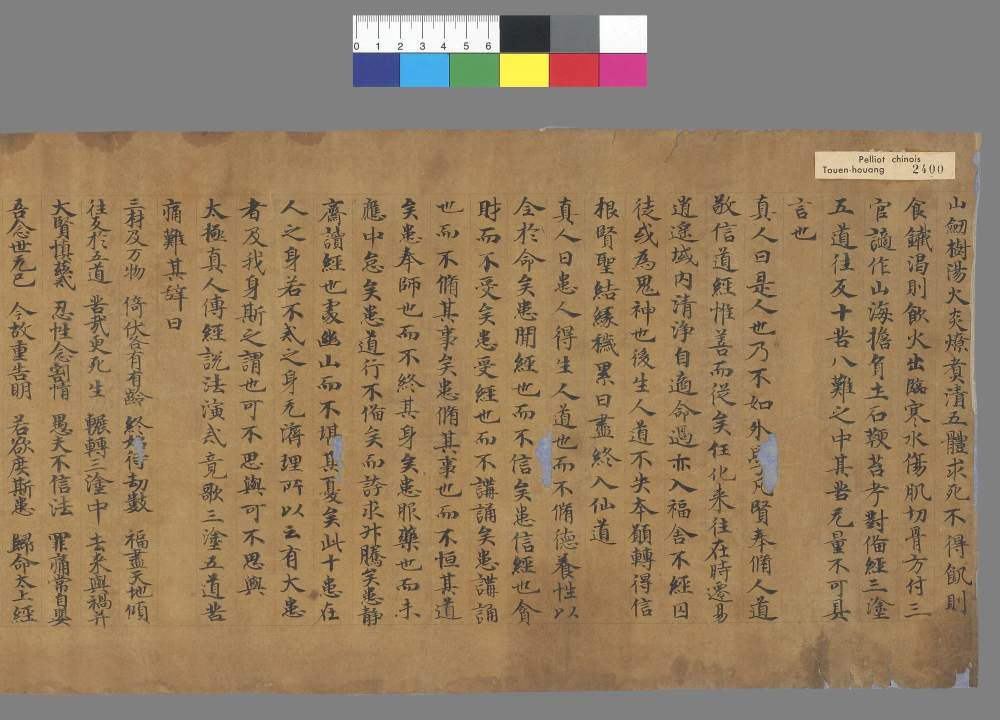 Pelliot chinois
Touen-houang 2400
0 1 2 3 4 5 6
山劒樹湯火炎燎煑清五體求死不得飢則
食鐵渴則飲火出臨寒水傷肌切骨方付三
官謫作山海擔負土石鞭苔考對備經三塗
五道往反十苦八難之中其苦无量不可具
言也
真人曰是人也乃不如外凡賢奉脩人道
敬信道經惟善而從矣任化来往在時遷易
逍遥域内清净自適命過亦入福舍不經囚
徒或為鬼神也後生人道不失本願轉得信
根賢聖結緣穢累日盡終入仙道
真人曰患人得生人道也而不脩德養性以
全於命矣患開經也而不信矣患信經也貪
財而不受矣患受經也而不講誦矣患講誦
也而不脩其事矣患脩其事也而不恒其道
矣患奉師也而不終其身矣患服藥也而未
應中怠矣患道行不備矣而誇求升騰矣患静
齋讀經也處幽山而不堪其憂矣此十患在
人之身若不貳之身无濟理所以云有大患
者及我身斯之謂也可不思與可不思與
太極真人傳經說法演弍竟歌三塗五道苦
痛難其辞曰
三才及万物 倚伏各有齡 終始待劫數 福盡天地傾
往反於五道 苦哉更死生 輾轉三塗中 去来與禍并
大賢慎兹戒 忍性念割情 愚夫不信法 罪痛常自嬰
吾念世无已 今故重告明 若欲度斯患 歸命太上經